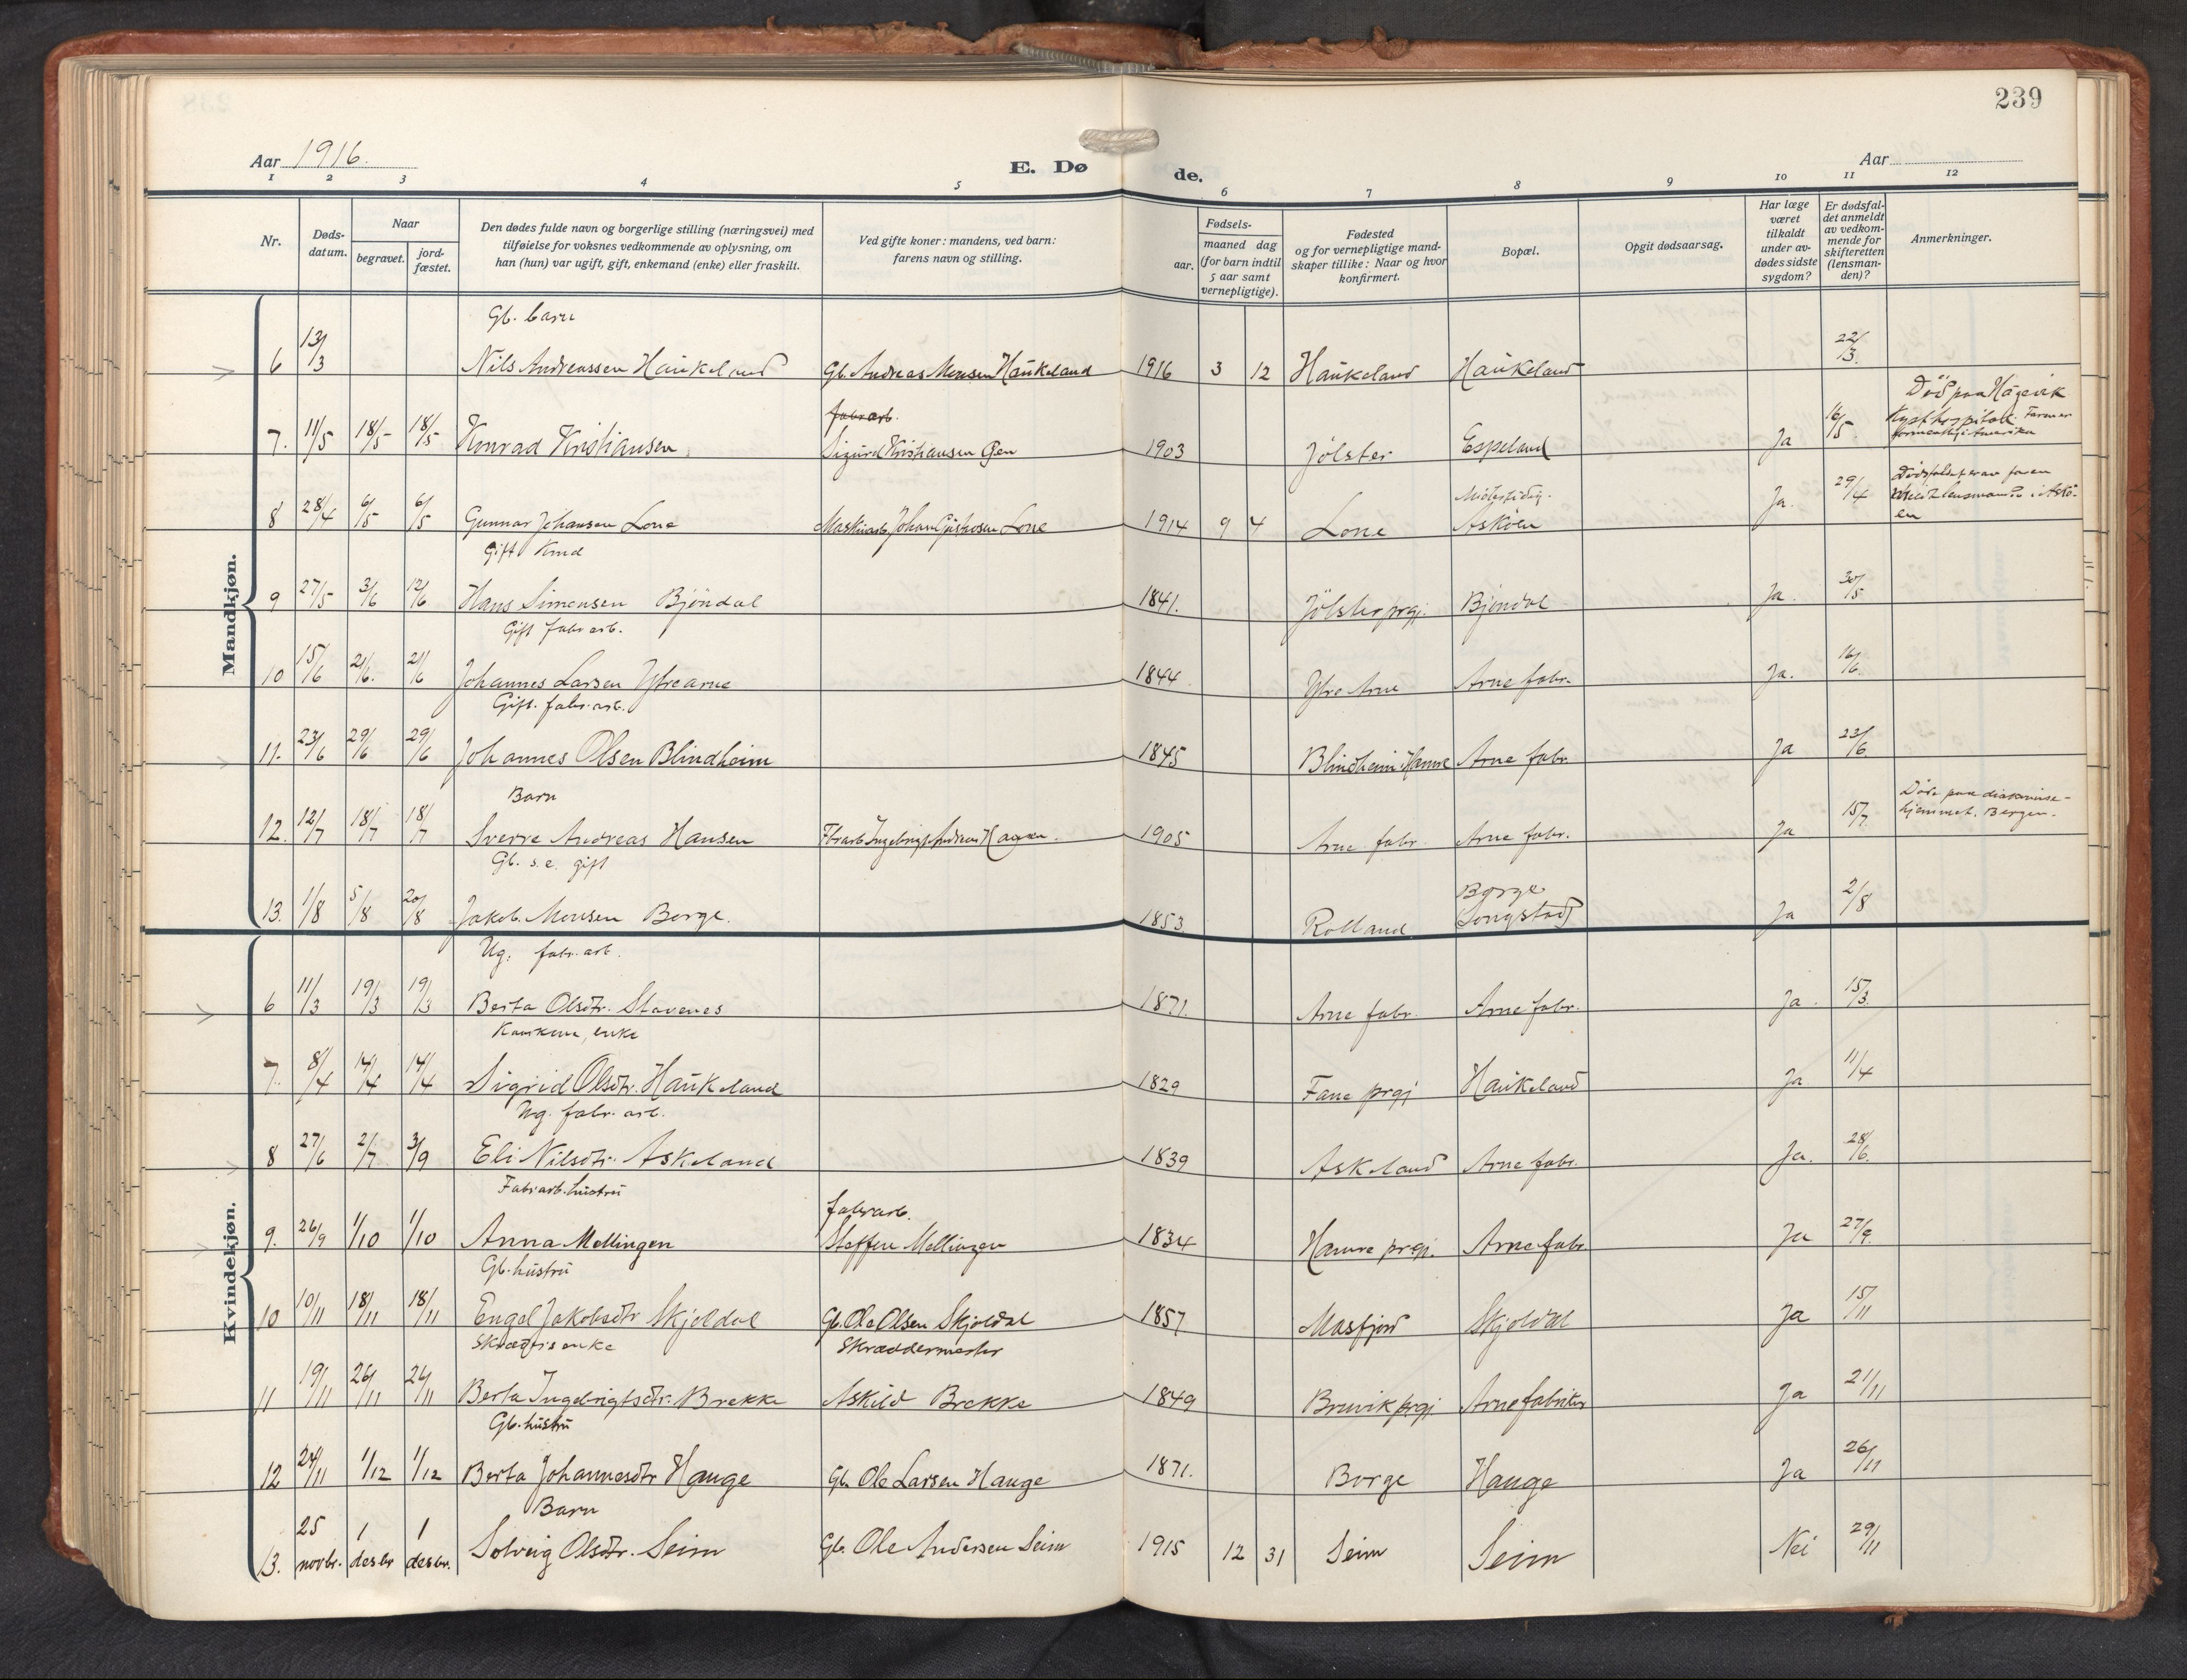 239
Aar 1916.
E. Døde.
Aar
1 2 3 4 5 6 7 8 9 10 11 12
Nr.
Døds-
datum.
Naar
begravet.
jord-
fæstet.
Den dødes fulde navn og borgerlige stilling (næringsvei) med
tilføielse for voksnes vedkommende av oplysning, om
han (hun) var ugift, gift, enkemand (enke) eller fraskilt.
Ved gifte koner: mandens, ved barn:
farens navn og stilling.
Fødsels-
aar.
maaned dag
(for barn indtil
5 aar samt
vernepligtige).
Fødested
og for vernepligtige mand-
skaper tillike: Naar og hvor
konfirmert.
Bopæl.
Opgit dødsaarsag.
Har læge
været
tilkaldt
under av-
dødes sidste
sygdom?
Er dødsfal-
det anmeldt
av vedkom-
mende for
skifteretten
(lensman-
den)?
Anmerkninger.
Mandkjøn.
Gb. barn
6 13/3 Nils Andreassen Haukeland Gb. Andreas Monsen Haukeland 1916 3 12 Haukeland Haukeland 22/3.
fabr.arb.
7. 11/5 18/5 18/5 Konrad Kristiansen Sigurd Kristiansen Gjen 1903 Jølster Espeland Ja 16/5. Död paa Hagevik
Kysthospital. Faren er
Midlertidig.
8 28/4 6/5 6/5 Gunnar Johansen Lone Maskinarb. Johan Gustavsen Lone 1914 9 4 Lone Askøen Ja. 29/4 Dødsfaldet er av faren
meldt lensmanden i Askö-
en
Gift Kmd
9 27/5 3/6 12/6 Hans Simonsen Bjöndal 1841. Jölster prgj. Bjöndal Ja. 30/5
Gift fabr arb.
10 15/6 21/6. 21/6 Johannes Larsen Ytrearne 1844. Ytre Arne Arne fabr. Ja. 16/6.
Gift. fabr. arb.
11. 23/6 29/6 29/6 Johannes Olsen Blindheim 1845 Blindheim Hamre Arne fabr. Ja 23/6.
Barn
12. 12/7 18/7 18/7 Sverre Andreas Hansen 1905 Arne fabr. Arne fabr. Ja 15/7. Døde paa diakonisse-
hjemmet, Bergen.
Gb. s.e. gift
13. 1/8 5/8 20/8 Jakob Monsen Borge. 1853. Rolland Borge
Ja 2/8
Kvindekjøn.
Ug. fabr. arb.
6 11/3 19/3 19/3 Berta Olsdtr. Stavenes 1871. Arne fabr. Arne fabr. Ja. 15/3.
enke
7. 8/4 14/4 14/4 Sigrid Olsdtr. Haukeland 1829 Fane prgj Haukeland Ja 11/4
Ug. fabr. arb.
8 27/6 2/7 3/9 Eli Nilsdtr. Askeland 1839 Askeland Arne fabr. Ja. 28/6.
Fabr arb. hustru fabrarb.
9. 26/9 1/10 1/10 Anna Mellingen Steffen Mellingen 1834 Hamre prgj. Arne fabr. Ja 27/9.
Gb. hustru
10 10/11 18/11 18/11 Engel Jakobsdtr Skjoldal Gb. Ole Olsen Skjoldal 1857 Masfjord Skjoldal Ja 15/11
enke Skræddermester
11 19/11 26/11 26/11 Berta Ingebrigtsdtr. Brekke Askild Brekke 1849 Bruvik prgj. Arne fabriker Ja 21/11
Gb. hustru
12 24/11 1/12 1/12 Berta Johannesdtr Hauge Gb. Ole Larsen Hauge 1871. Borge Hauge Ja 26/11
Barn
13. 25 novbr. 1 desbr 1 desbr. Solveig Olsdtr. Seim Gb. Ole Andersen Seim 1915 12 31 Seim Seim Nei 29/11